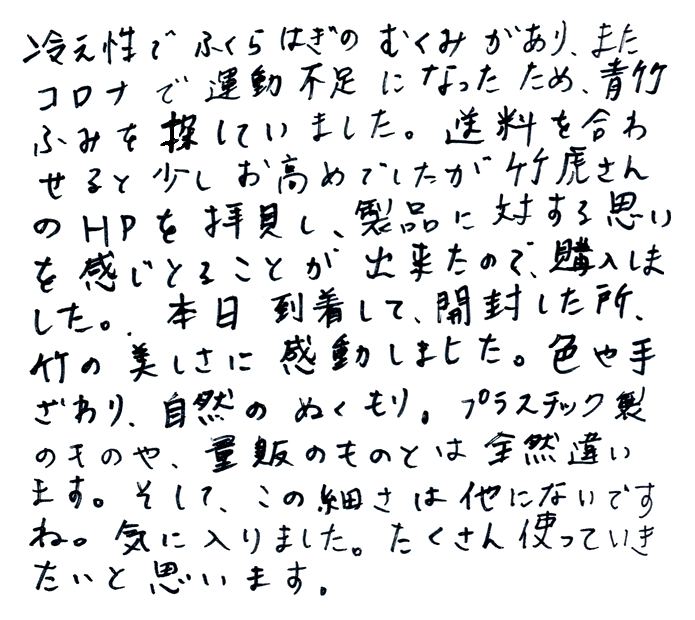 冷え性でふくらはぎのむくみがあり、また
コロナで運動不足になったため、青竹
ふみを探していました。送料を合わ
せると少しお高めでしたが竹虎さん
のHPを拝見し、製品に対する思い
を感じとることが出来たので、購入しま
した。本日到着して、開封した所、
竹の美しさに感動しました。色や手
ざわり、自然のぬくもり。プラスチック製
のものや、量販のものとは全然違い
ます。そして、この細さは他にないです
ね。気に入りました。たくさん使っていき
たいと思います。